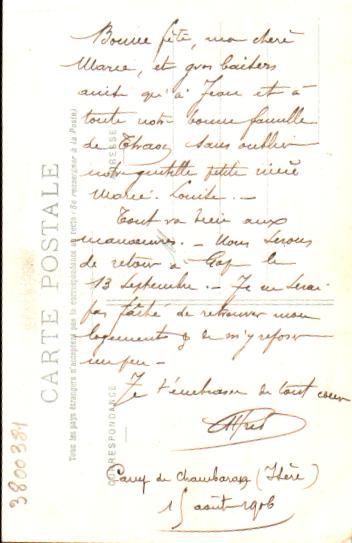 Bonne fête, ma chère
Marie, et gros baisers
ainsi qu'à Jean et à
toute notre bonne famille
de sans oublier
notre gentille petite nièce
Marie-Louise. -
Tout va bien aux
manœuvres. - Nous serons
de retour à Gap le
13 Septembre. - Je ne serai
pas fâché de retrouver mon
logement & de m'y reposer
un peu -
Je t'embrasse de tout cœur
Alfred
Camp de Chambaran (Isère)
15 août 1906
CARTE POSTALE
Tous les pays étrangers n'acceptent pas la correspondance au recto (Se renseigner à la Poste)
CORRESPONDANCE
ADRESSE
3800384